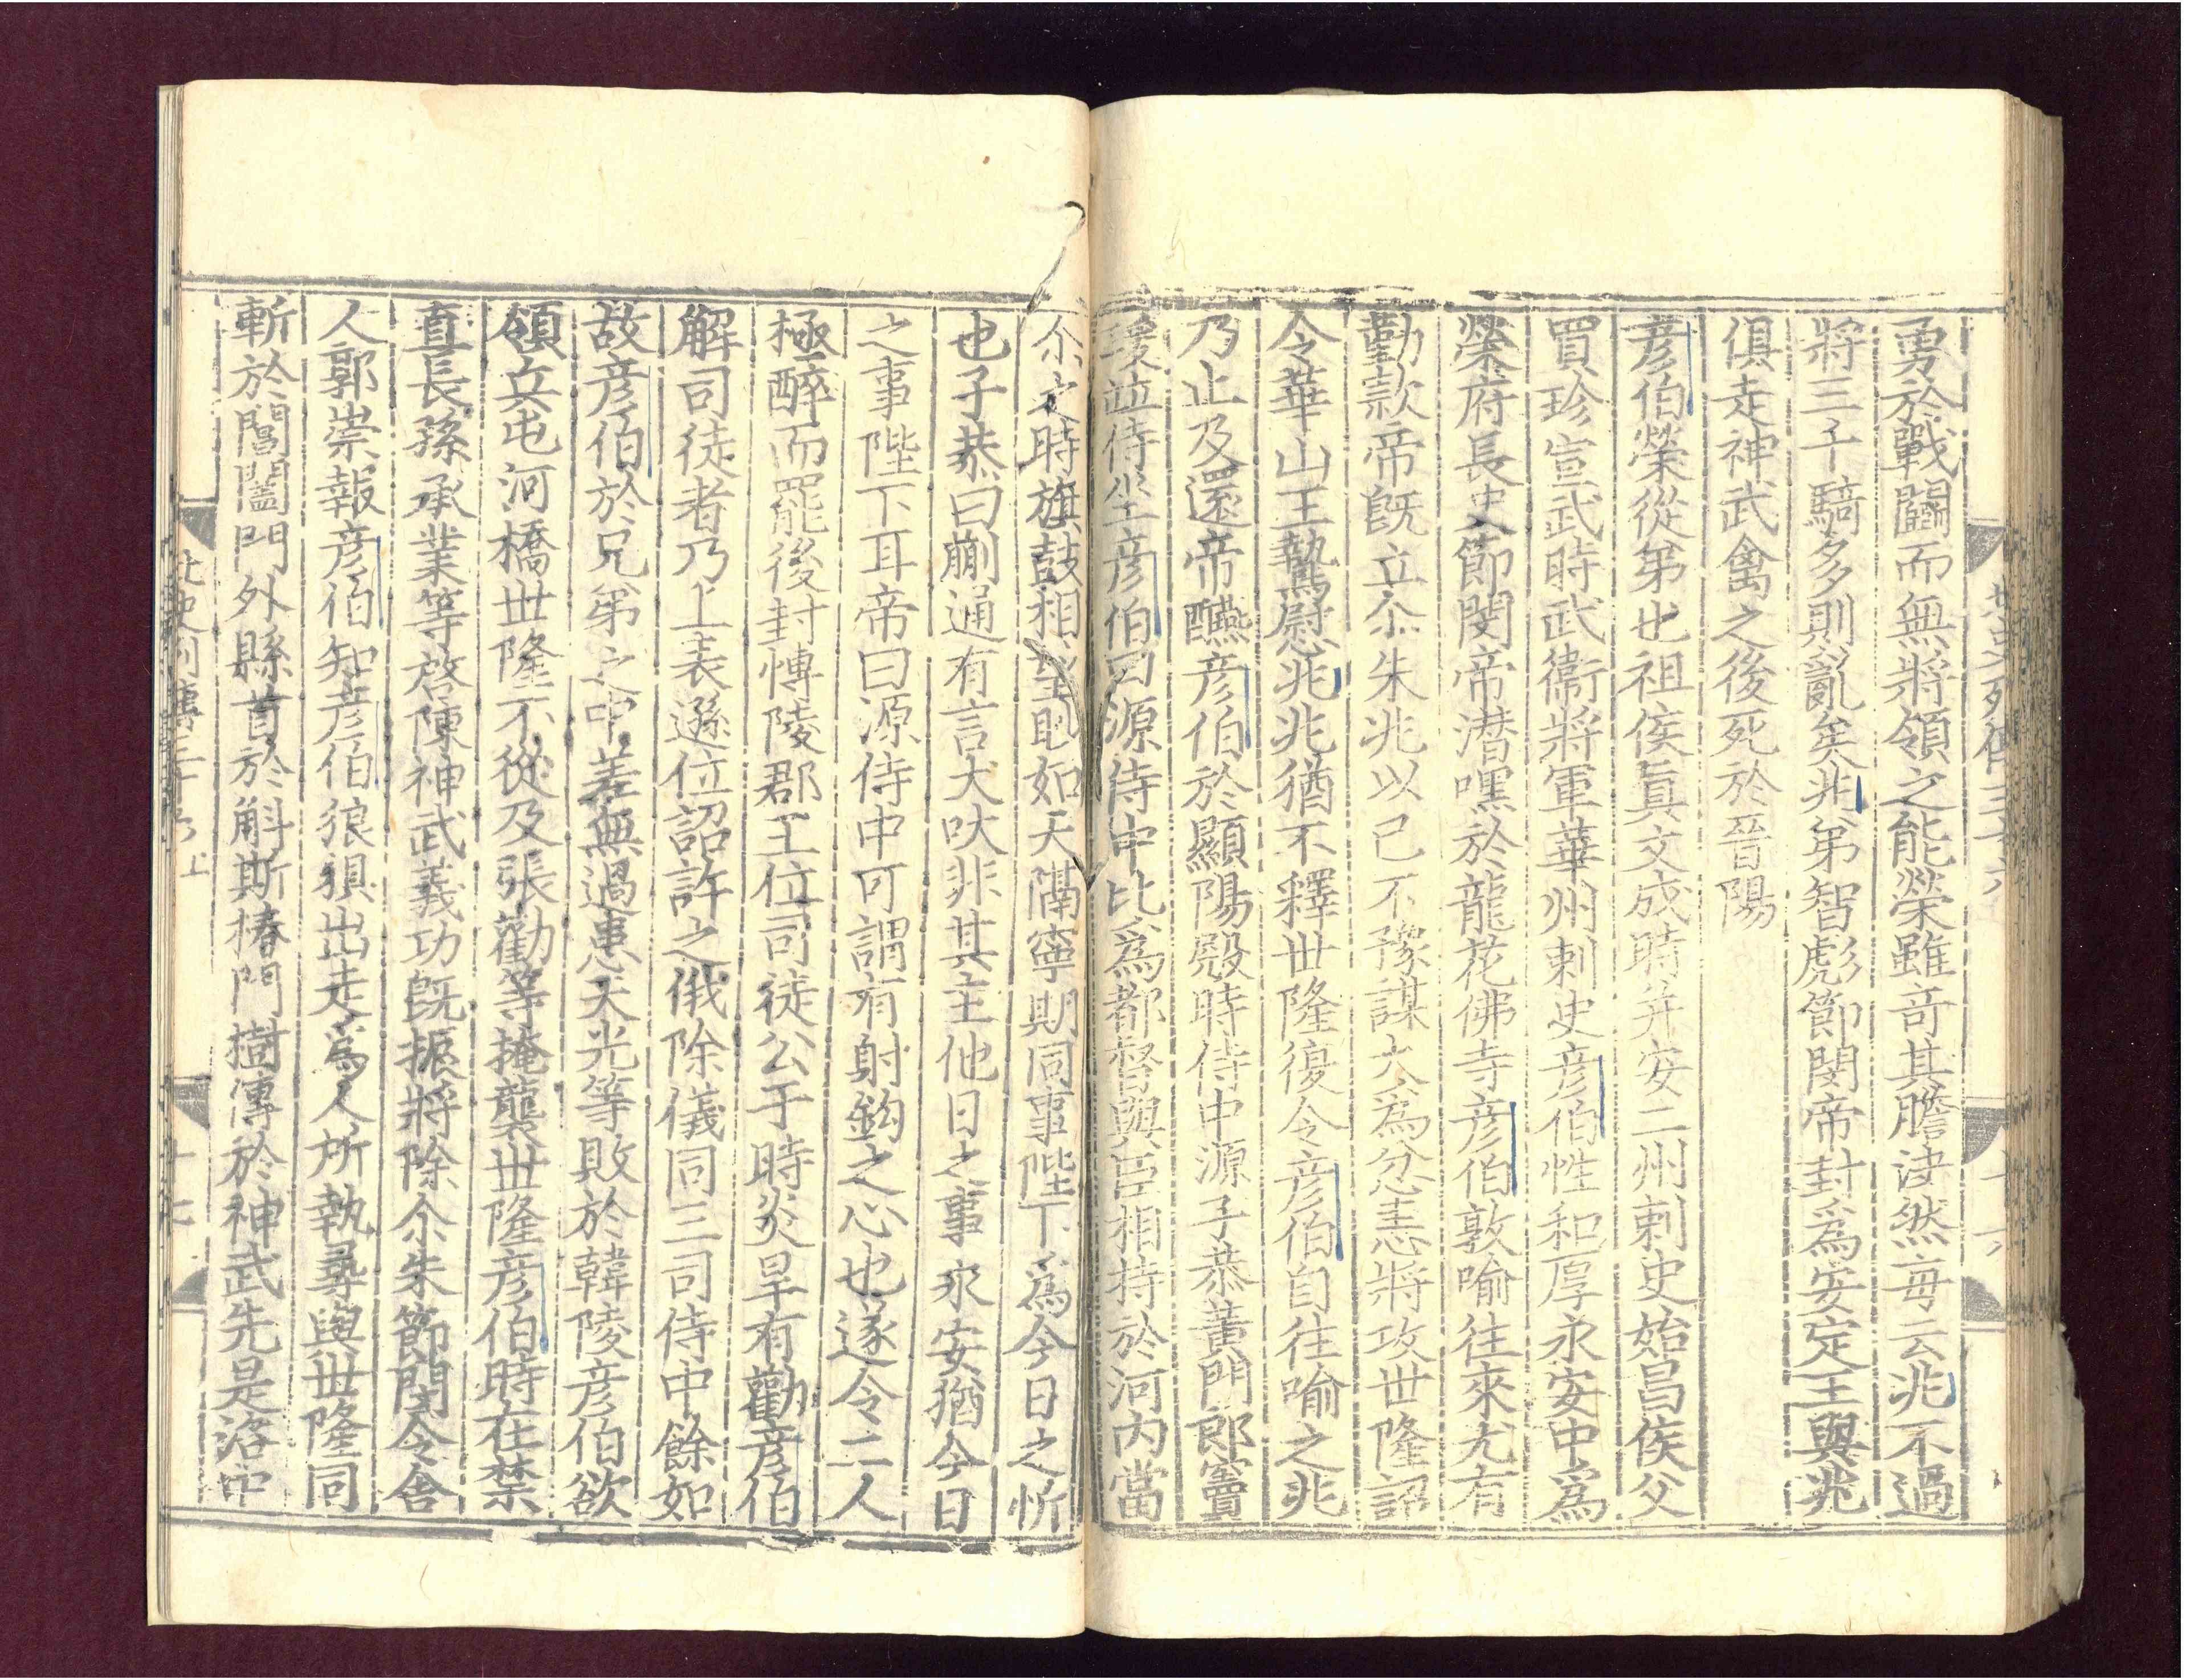 北史列傳三十六
十六
勇於戰鬬而無將領之能榮雖竒其膽決然每云兆不過
將三千騎多則亂矣兆弟智彪節閔帝封爲安定王與兆
俱走神武禽之後死於晉陽
彦伯榮從弟也祖侯眞文成時并安二州刺史始昌侯父
買珍宣武時武衞將軍華州刺史彦伯性和厚永安中爲
榮府長史節閔帝潜嘿於龍花佛寺彦伯敦喻往來尤有
勤款帝旣立尒朱兆以已不豫謀大爲忿恚將攻世隆詔
令華山王鷙慰兆兆猶不釋世隆復令彦伯自往喻之兆
乃止及還帝醼彦伯於顯陽殿時侍中源子恭黄門郎竇
瑗竝侍坐彦伯曰源侍中比爲都督與臣相持於河内當
尒之時旗鼓相望眇如天隔寧期同事陛下爲今日之忻
也子恭曰蒯通有言犬吠非其主他日之事永安猶今日
之事陛下耳帝曰源侍中可謂有射鈎之心也遂令二人
極醉而罷後封愽陵郡王位司徒公于時炎旱有勸彦伯
解司徒者乃上表遜位詔許之俄除儀同三司侍中餘如
故彦伯於兄弟之中差無過患天光等敗於韓陵彦伯欲
領兵屯河橋世隆不從及張勸等掩襲世隆彦伯時在禁
直長孫承業等啓陳神武義功旣振將除尒朱節閔令舍
人郭崇報彦伯知彦伯狼狽出走爲人所執尋與世隆同
斬於閶闔門外縣首於斛斯椿門樹傳於神武先是洛中
北史列傳三十六上
十七